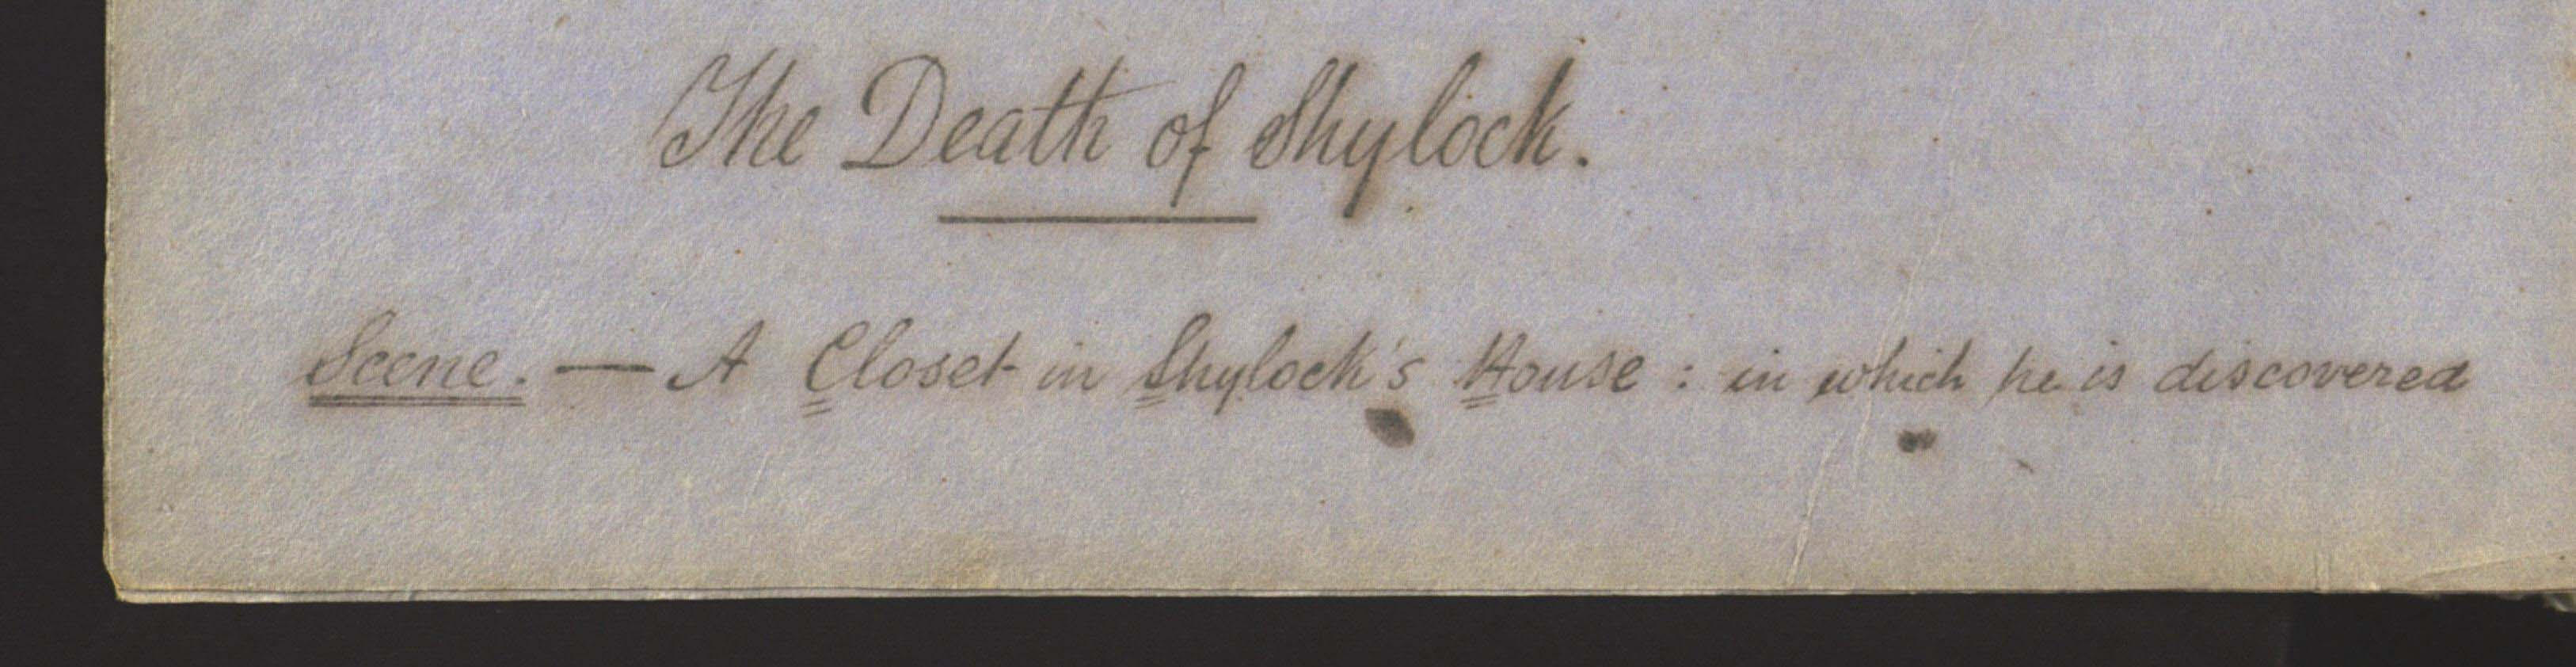 The Death of Shylock.
Scene. — A Closet in Shylock's House : in which he is discovered